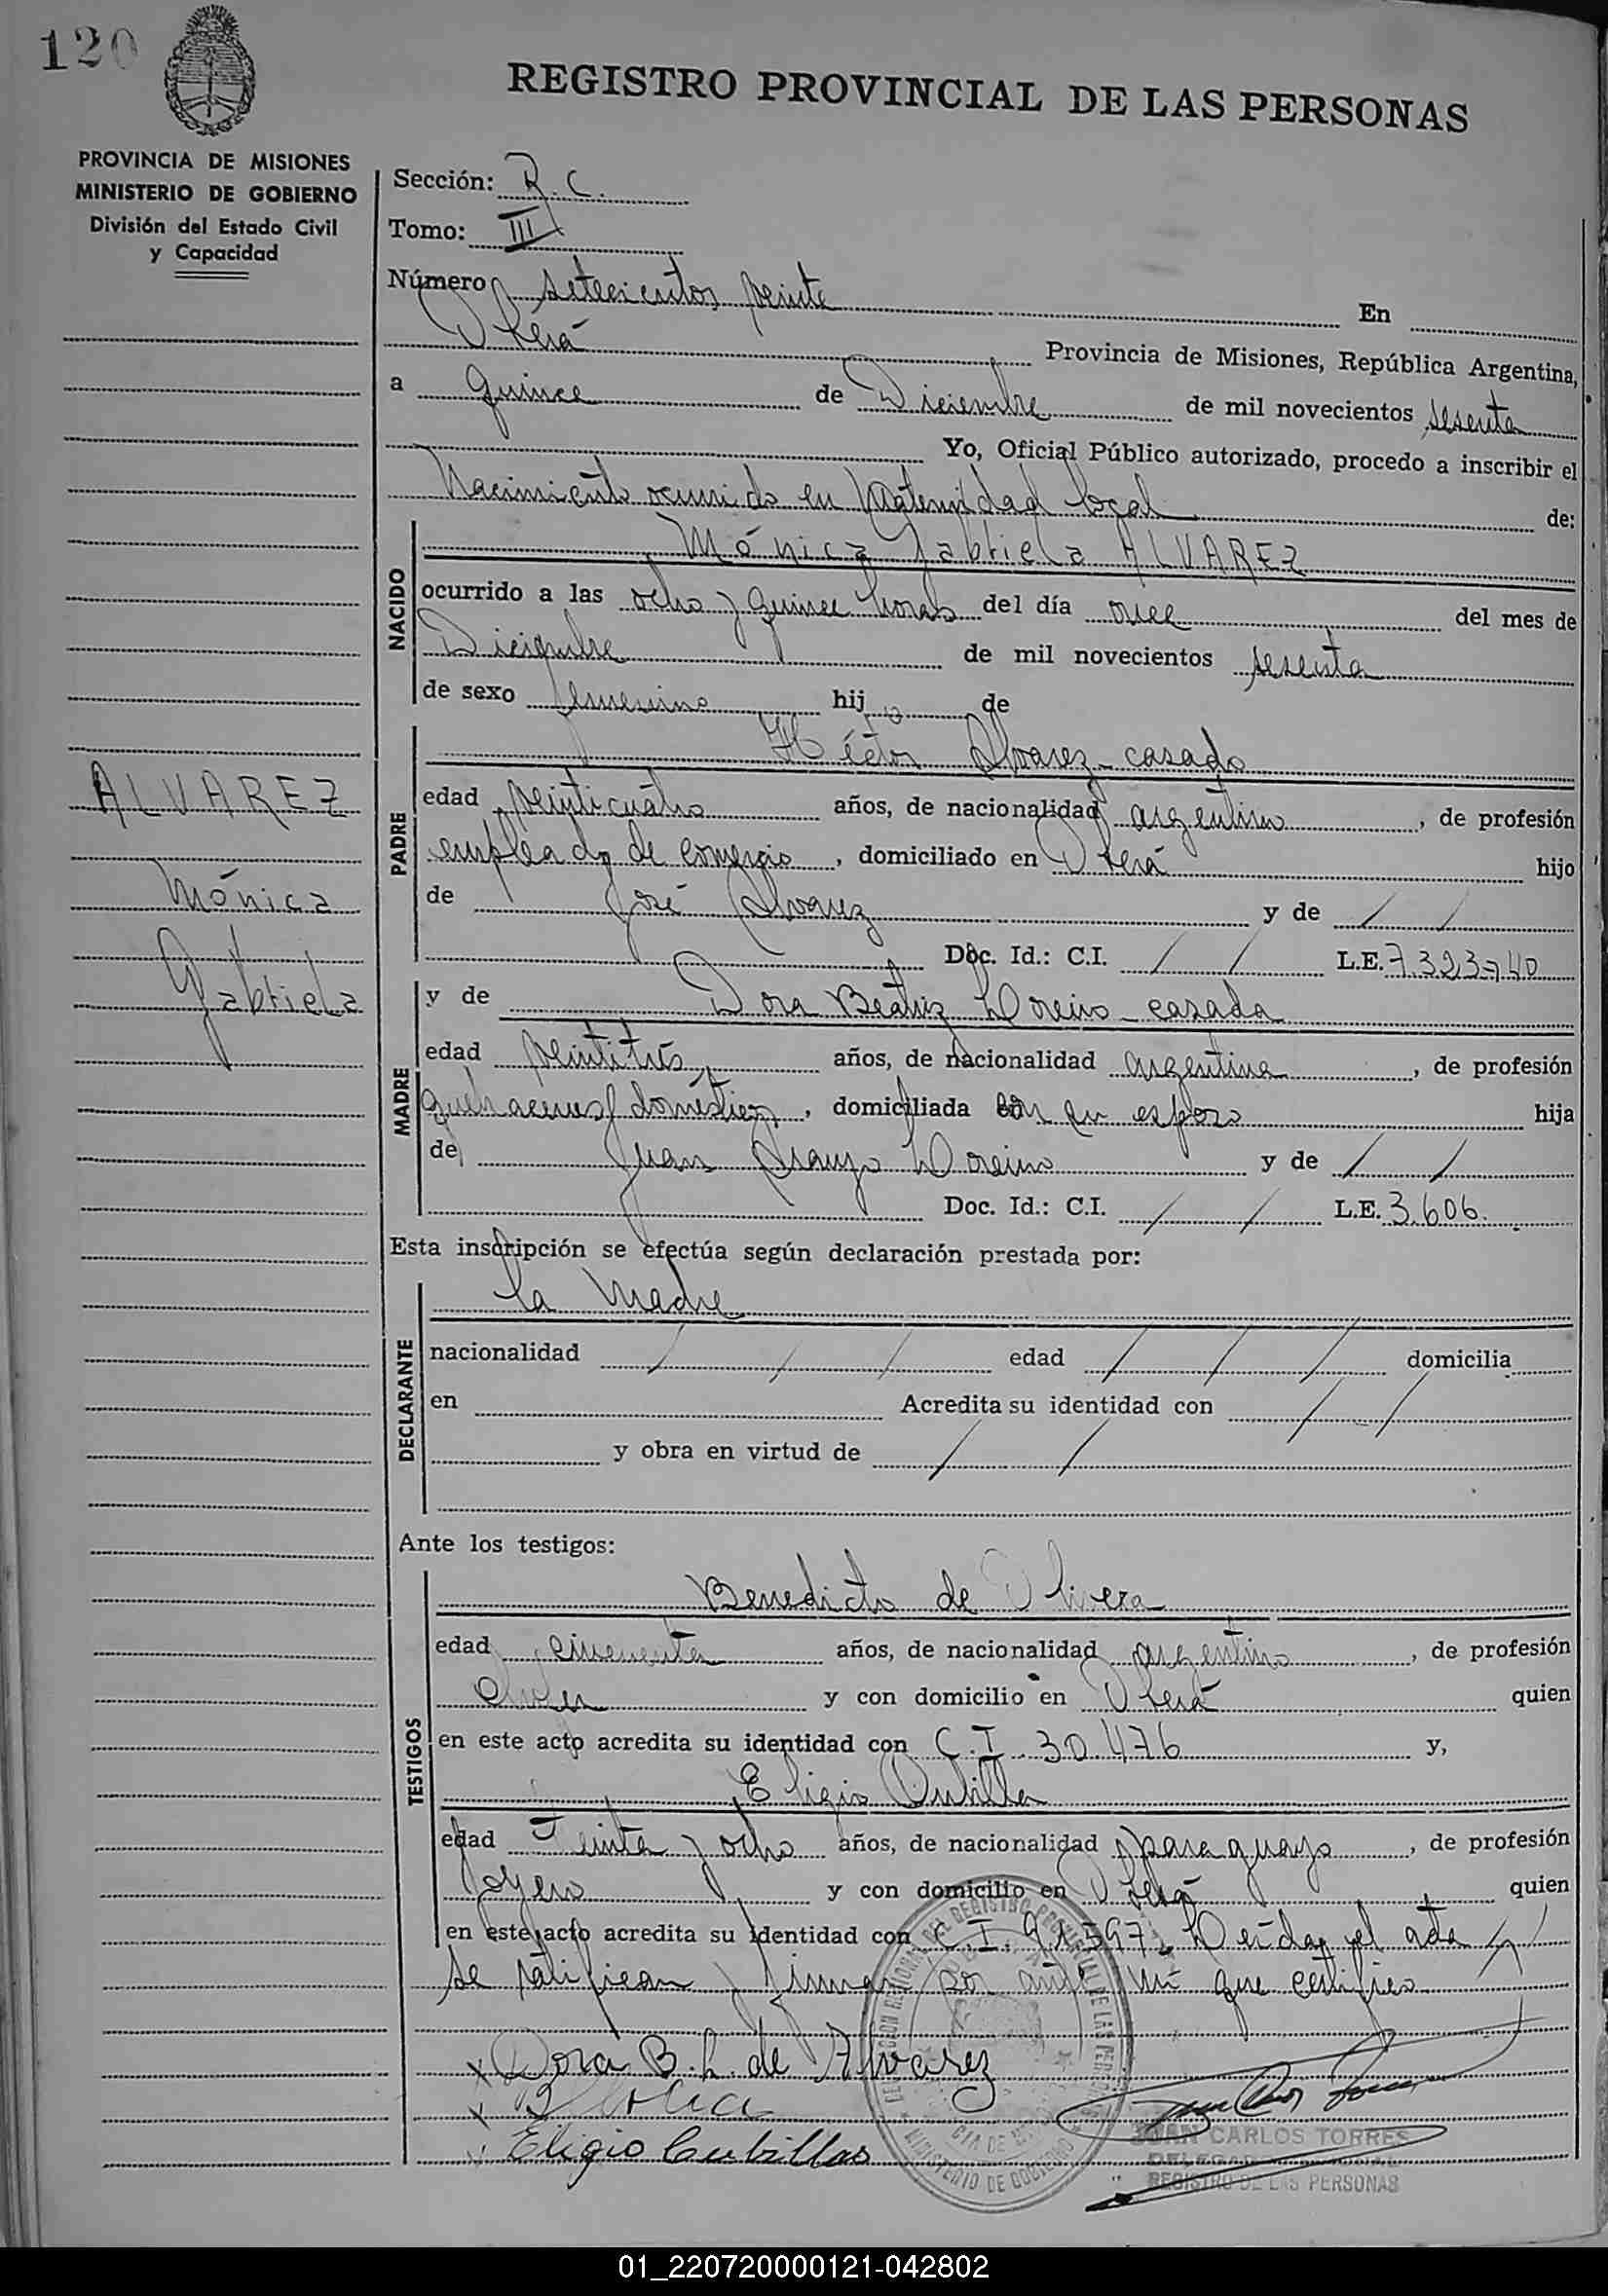 120
REGISTRO PROVINCIAL DE LAS PERSONAS
PROVINCIA DE MISIONES
MINISTERIO DE GOBIERNO
División del Estado Civil
y Capacidad
Sección: R. C.
Tomo: III
Número setecientos veinte En
Oberá Provincia de Misiones, República Argentina,
a quince de Diciembre de mil novecientos sesenta
Yo, Oficial Público autorizado, procedo a inscribir el
Nacimiento ocurrido en Maternidad local de:
NACIDO
Mónica Gabriela ALVAREZ
ocurrido a las ocho y quince horas del día once del mes de
Diciembre de mil novecientos sesenta
de sexo femenino hij a de
PADRE
Héctor Alvarez casado
edad veinticuatro años, de nacionalidad argentino, de profesión
empleado de comercio, domiciliado en Oberá hijo
de José Alvarez y de / /
Doc. Id.: C.I. / / L.E. 7.323.740
ALVAREZ
Mónica
Gabriela
MADRE
y de Dora Beatriz Loreiro casada
edad veintitrés años, de nacionalidad argentina, de profesión
quehaceres domésticos, domiciliada con su esposo hija
de Juan Araujo Loreiro y de / /
Doc. Id.: C.I. / / L.E. 3.606.
Esta inscripción se efectúa según declaración prestada por:
DECLARANTE
la Madre
nacionalidad / / / edad / / / domicilia
en Acredita su identidad con / /
y obra en virtud de / /
Ante los testigos:
TESTIGOS
Benedicto de Olivera
edad cincuenta años, de nacionalidad argentino, de profesión
chofer y con domicilio en Oberá quien
en este acto acredita su identidad con C.I. 30.476 y,
Eligio Cubilla
edad Treinta y ocho años, de nacionalidad paraguayo, de profesión
Joyero y con domicilio en Oberá quien
en este acto acredita su identidad con C.I. 91.597. Leída el acta
se ratifican y firman por ante mí que certifico
x Dora B. L. de Alvarez
x
x Eligio Cubillas
JUAN CARLOS TORRES
REGISTRO DE LAS PERSONAS
MINISTERIO DE GOBIERNO
01_220720000121-042802